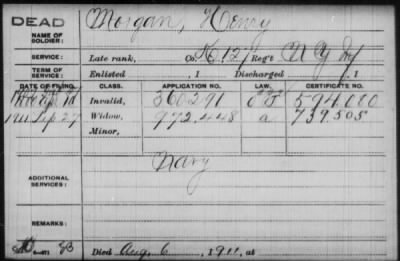 DEAD
Morgan, Henry
NAME OF SOLDIER:
SERVICE: Late rank, Co. K, 127 Reg't N Y Inf
TERM OF SERVICE: Enlisted , 1 Discharged , 1
DATE OF FILING. CLASS. APPLICATION NO. LAW. CERTIFICATE NO.
Invalid, 360291 594,080
1911 Sep 27 Widow, 972,448 a 739,505
Minor,
Navy
ADDITIONAL SERVICES:
REMARKS:
Died Aug. 6, 1911, at